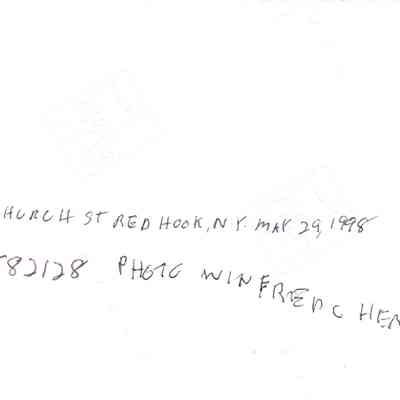 HURCH ST RED HOOK, N.Y. MAY 29, 1998
82128 PHOTO WINFRED C HER